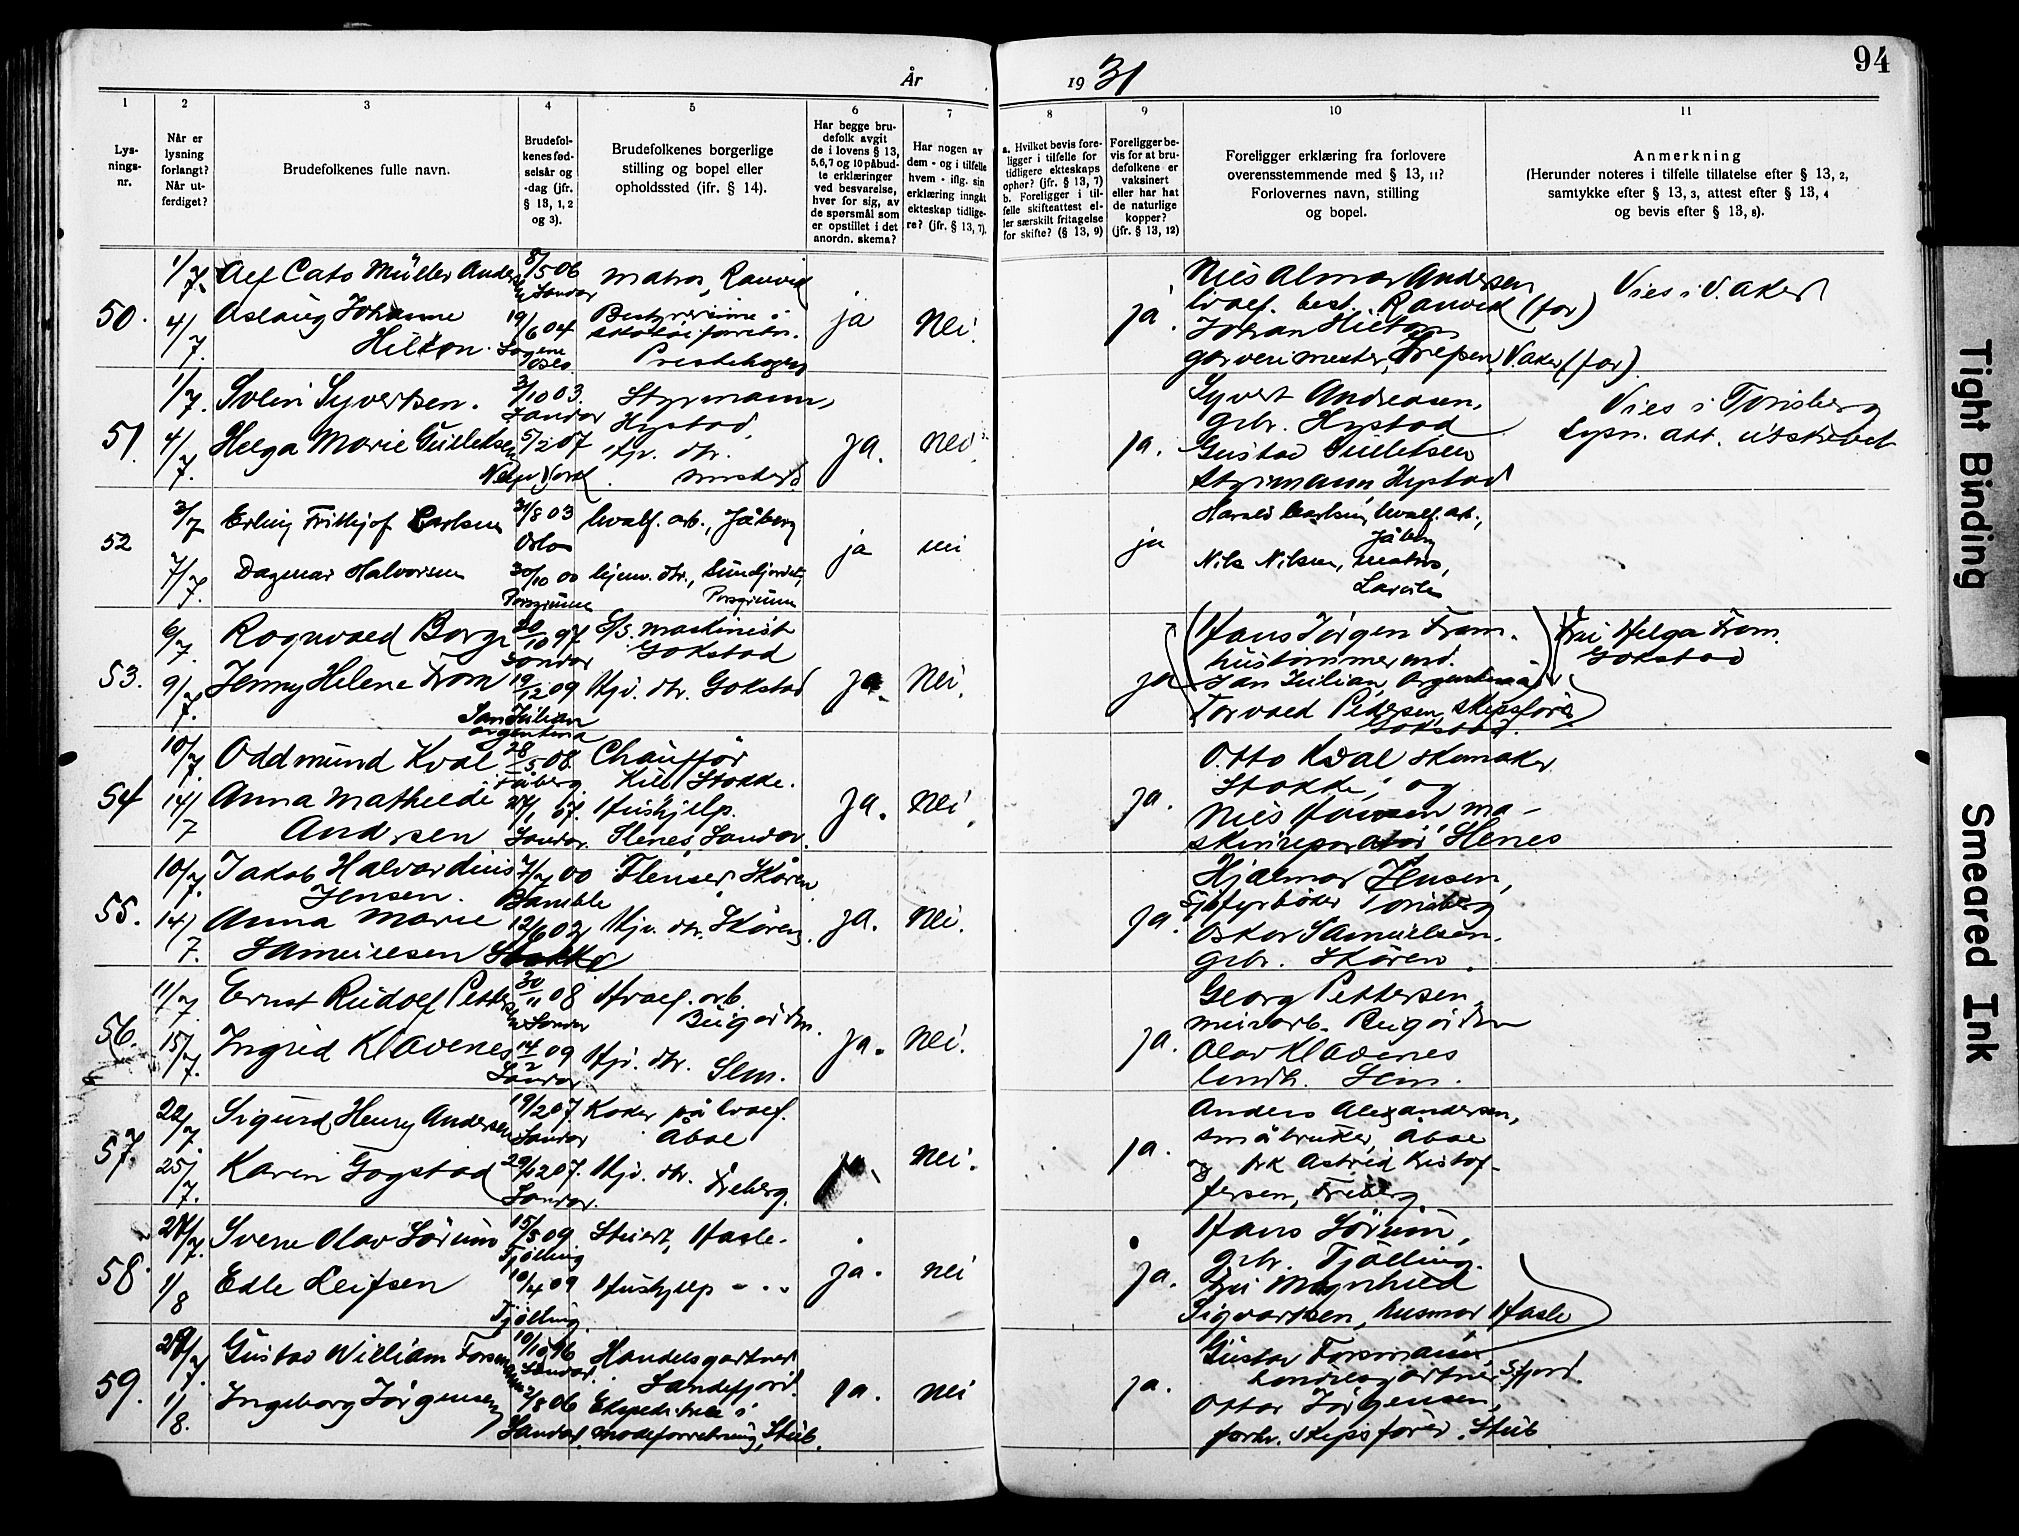 År
19 31
94
1
2
3
4
5
6
7
8
9
10
11
Lys-
nings-
nr.
Når er
lysning
forlangt?
Når ut-
ferdiget?
Brudefolkenes fulle navn.
Brudefol-
kenes fød-
selsår og
-dag (jfr.
§ 13, 1, 2
og 3).
Brudefolkenes borgerlige
stilling og bopel eller
opholdssted (jfr. § 14).
Har begge bru-
defolk avgit
de i lovens § 13,
5,6,7 og 10 påbud-
te erklæringer
ved besvarelse,
hver for sig, av
de spørsmål som
er opstillet i det
anordn. skema?
Har nogen av
dem - og i tilfelle
hvem - iflg. sin
erklæring inngåt
ekteskap tidlige-
re? (jfr. § 13, 7).
a. Hvilket bevis fore-
ligger i tilfelle for
tidligere ekteskaps
ophør? (jfr. § 13, 7)
b. Foreligger i til-
felle skifteattest el-
ler særskilt fritagelse
for skifte? (§ 13, 9)
Foreligger be-
vis for at bru-
defolkene er
vaksinert
eller har hat
de naturlige
kopper?
(jfr. § 13, 12)
Foreligger erklæring fra forlovere
overensstemmende med § 13, 11?
Forlovernes navn, stilling
og bopel.
Anmerkning
(Herunder noteres i tilfelle tillatelse efter § 13, 2,
samtykke efter § 13, 3, attest efter § 13, 4
og bevis efter § 13, 8).
50.
1/7.
4/7.
Alf Cato Müller Andersen
8/5 06
Sandar
Matros, Ranvik
Aslaug Johanne
Hilton.
19/6 04
Sagene
Oslo
Bestyrerinne i
Prestehagen
ja
Nei.
ja.
Nils Almar Andersen
hvalf. best. Ranvik (far)
Johan Hilton
garverimester, Grefsen, V. aker (far)
Vies i V. aker
51.
1/7.
4/7
Svein Syvertsen.
3/10 03.
Sandar
Styrmann,
Hystad,
Helga Marie Gulliksen
5/2 07
New York
Hjv. dtr.
ja.
nei.
ja.
Syvert Andreasen,
grbr. Hystad
Gustav Gulliksen
styrmann Hystad
Vies i Tønsberg
Lysn. att. utskrevet
52
3/7
7/7.
Erling Frithjof Carlsen
31/8 03
Oslo
hvalf. arb., Jåberg
Dagmar Halvorsen
30/10 00
Porsgrunn
hjemv. dtr., Sundjordet,
Porsgrunn
ja
nei
ja
Harald Carlsen, hvalf. arb.,
Jåberg
Nils Nilsen, matros,
Larvik
53.
6/7.
9/7.
Rognvald Borge
20/10 97
Sandar
S/S. maskinist
Gokstad
Jenny Helene Fram
19/12 09
San Julian
Argentina
Hjv. dtr. Gokstad
ja.
Nei.
ja
Hans Jørgen Fram.
hustømmermd.
San Julian, Argentina
Torvald Pedersen, skipsfører
Gokstad.
Fru Helga Fram
Gokstad
54
10/7.
14/7
Oddmund Kval
28/5 08.
Fåberg
Chauffør
Stokke.
Anna Mathilde
Andersen
27/1 07.
Sandar.
Hushjelp.
Henes, Sandar.
ja.
Nei.
ja.
Otto Kval skomaker
Stokke, og
Nils Hansen ma-
skinreparatør Henes
55.
10/7.
14/7.
Jakob Halvardius
Jensen.
7/7 00
Bamble
Flenser, Skåren
Anna Marie
Samuelsen
12/6 02
Stokke
Hjv. dtr. Skåren,
ja.
Nei.
ja.
Hjalmar Jensen,
fyrbøter Tønsberg
Oskar Samuelsen.
grbr. Skåren.
56.
11/7.
15/7.
Ernst Rudolf Pettersen
30/11 08
Sandar
Hvalf. arb.
Bugården.
Ingrid Klavenes
14/2 09
Sandar
Hjv. dtr. Sem.
ja.
Nei.
ja.
Georg Pettersen,
murarb. Bugården
Olav Klavenes
landh. Sem.
57.
22/7.
25/7.
Sigurd Henry Andersen
19/2 07.
Sandar
Koker på hvalf.
Åbol
Karen Gogstad
29/6 07.
Sandar.
Hjv. dtr. Freberg.
ja.
nei.
ja.
Anders Alexandersen,
småbruker, Åbol
og frk Astrid Kristof-
fersen, Freberg
58.
27/7.
1/8
Svene Olav Sørum
15/5 09
Tjølling
Stuert, Hasle.
Edle Leifsen
10/4 09
Tjølling.
Hushjelp - . .
ja.
nei
ja.
Hans Sørum,
grbr. Tjølling.
fru Magnhild
Sigvartsen, husmor Hasle
59.
29/7.
1/8.
Gustav William Forsmann
10/10 06
Sandar.
Handelsgartner
Sandefjord.
Ingeborg Jørgensen
2/8 06
Sandar.
Ekspeditrise i
modeforretning, Stub.
ja.
nei
ja.
Gustav Forsmann,
handelsgartner Sfjord.
Ottar Jørgensen,
forhv. skipsfører. Stub
Tight Binding
Smeared Ink